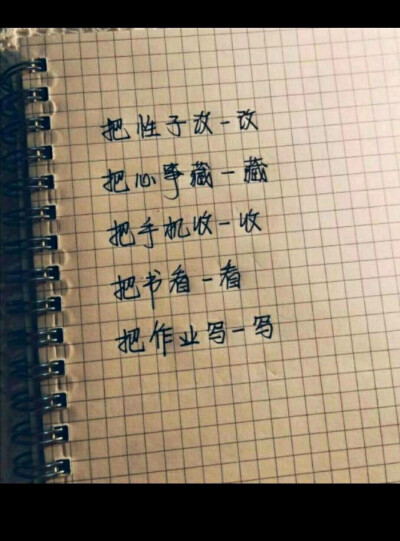 把性子改一改
把心事藏一藏
把手机收一收
把书看一看
把作业写一写